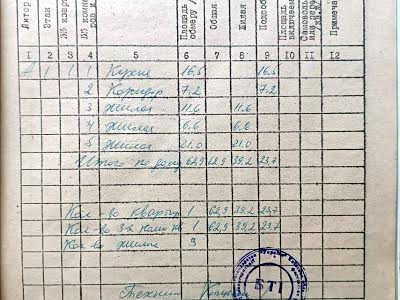 Литер
Этаж
№ кварт
№ комн
Площадь
обмеру
Общая
Жилая
Подсоб
Площадь
включаем
Самоволь
или пере
Примеча
1 2 3 4 5 6 7 8 9 10 11 12
А 1 1 1 Кухня 16,5 16,5
2 Коридор 7,2 7,2
3 Жилая 11.6 11.6
4 Жилая 6,6 6,6
5 Жилая 21,0 21,0
Итого по дому 62,9 62,9 39,2 23,7
Кол-во квартир 1 62,9 39,2 23,7
Кол-во 3-х комн кв 1 62,9 39,2 23,7
Кол-во жилых 3
БТІ
Техник